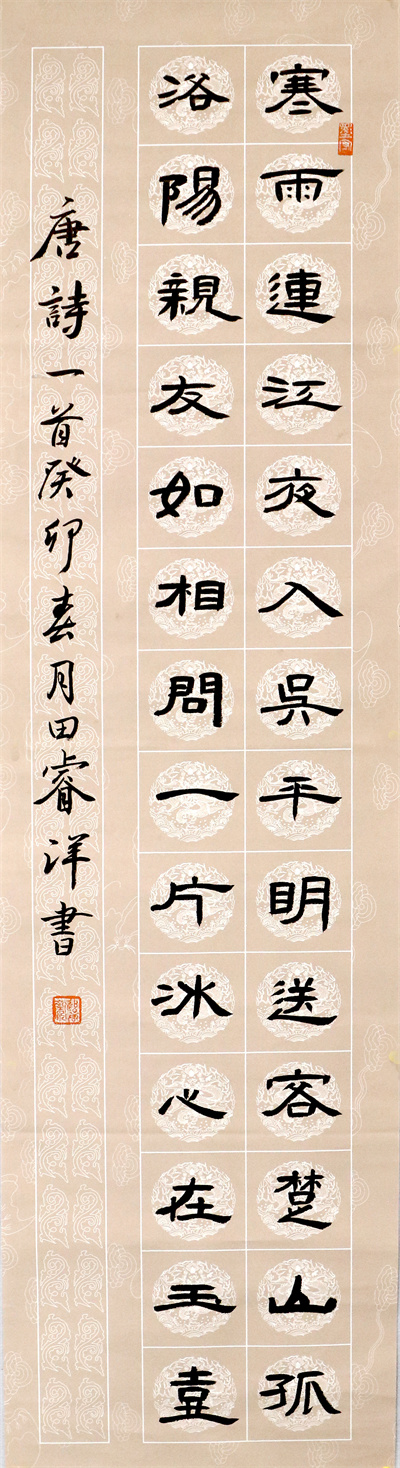 寒雨連江夜入吳平明送客楚山孤
洛陽親友如相問一片冰心在玉壺
唐詩一首癸卯春月田睿洋書